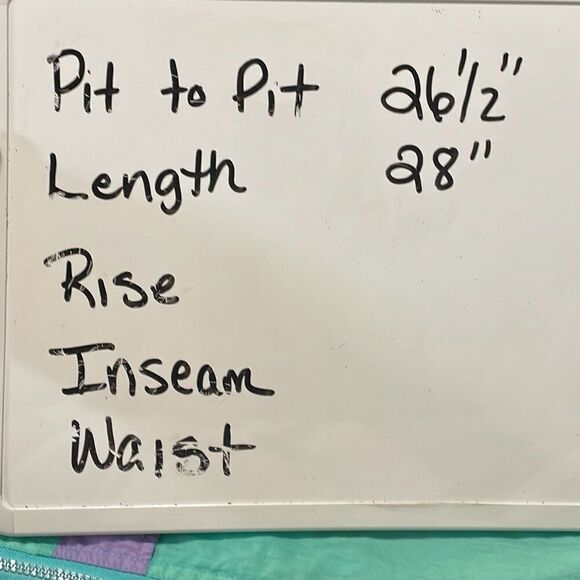 Pit to Pit 26 1/2"
Length 28"
Rise
Inseam
Waist